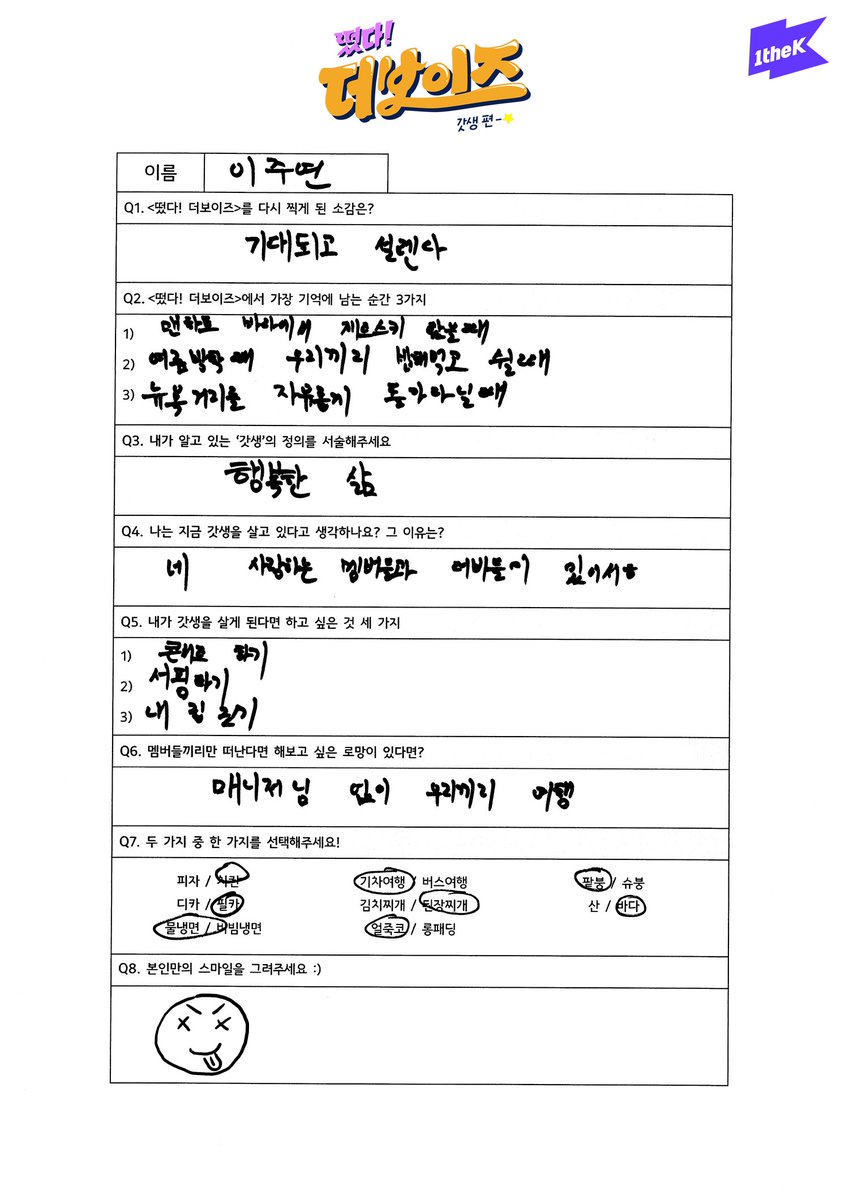 떴다!
더보이즈
갓생 편
1theK
이름 이주연
Q1. <떴다! 더보이즈>를 다시 찍게 된 소감은?
기대되고 설렌다
Q2. <떴다! 더보이즈>에서 가장 기억에 남는 순간 3가지
1) 맨하토 바아에서 제트스키
2) 여름방학때 우리끼리 밥해먹고 쉴때
3) 뉴욕거리를 자유롭게 돌아다닐때
Q3. 내가 알고 있는 '갓생'의 정의를 서술해주세요
행복한 삶
Q4. 나는 지금 갓생을 살고 있다고 생각하나요? 그 이유는?
네 사랑하는 멤버들과 더비들이 있어서ㅎ
Q5. 내가 갓생을 살게 된다면 하고 싶은 것 세 가지
1) 하기
2) 서핑하기
3) 내
Q6. 멤버들끼리만 떠난다면 해보고 싶은 로망이 있다면?
매니저님 없이 우리끼리 여행
Q7. 두 가지 중 한 가지를 선택해주세요!
피자 / 치킨 기차여행 / 버스여행 팥붕 / 슈붕
디카 / 필카 김치찌개 / 된장찌개 산 / 바다
물냉면 / 비빔냉면 얼죽코 / 롱패딩
Q8. 본인만의 스마일을 그려주세요 :)